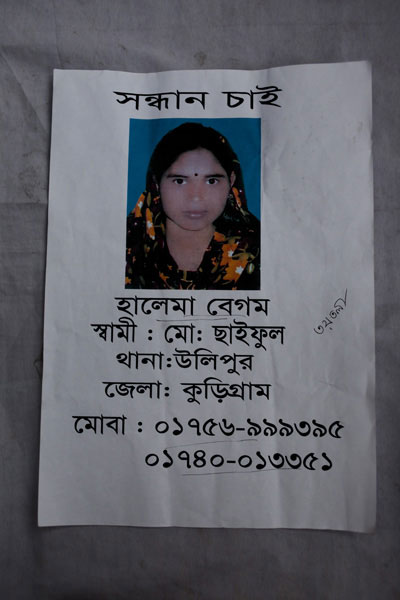 সন্ধান চাই
হালেমা বেগম
স্বামী : মো: ছাইফুল
থানা:উলিপুর
জেলা: কুড়িগ্রাম
মোবা : ০১৭৫৬-৯৯৯৩৯৫
০১৭৪০-০১৩৩৫১